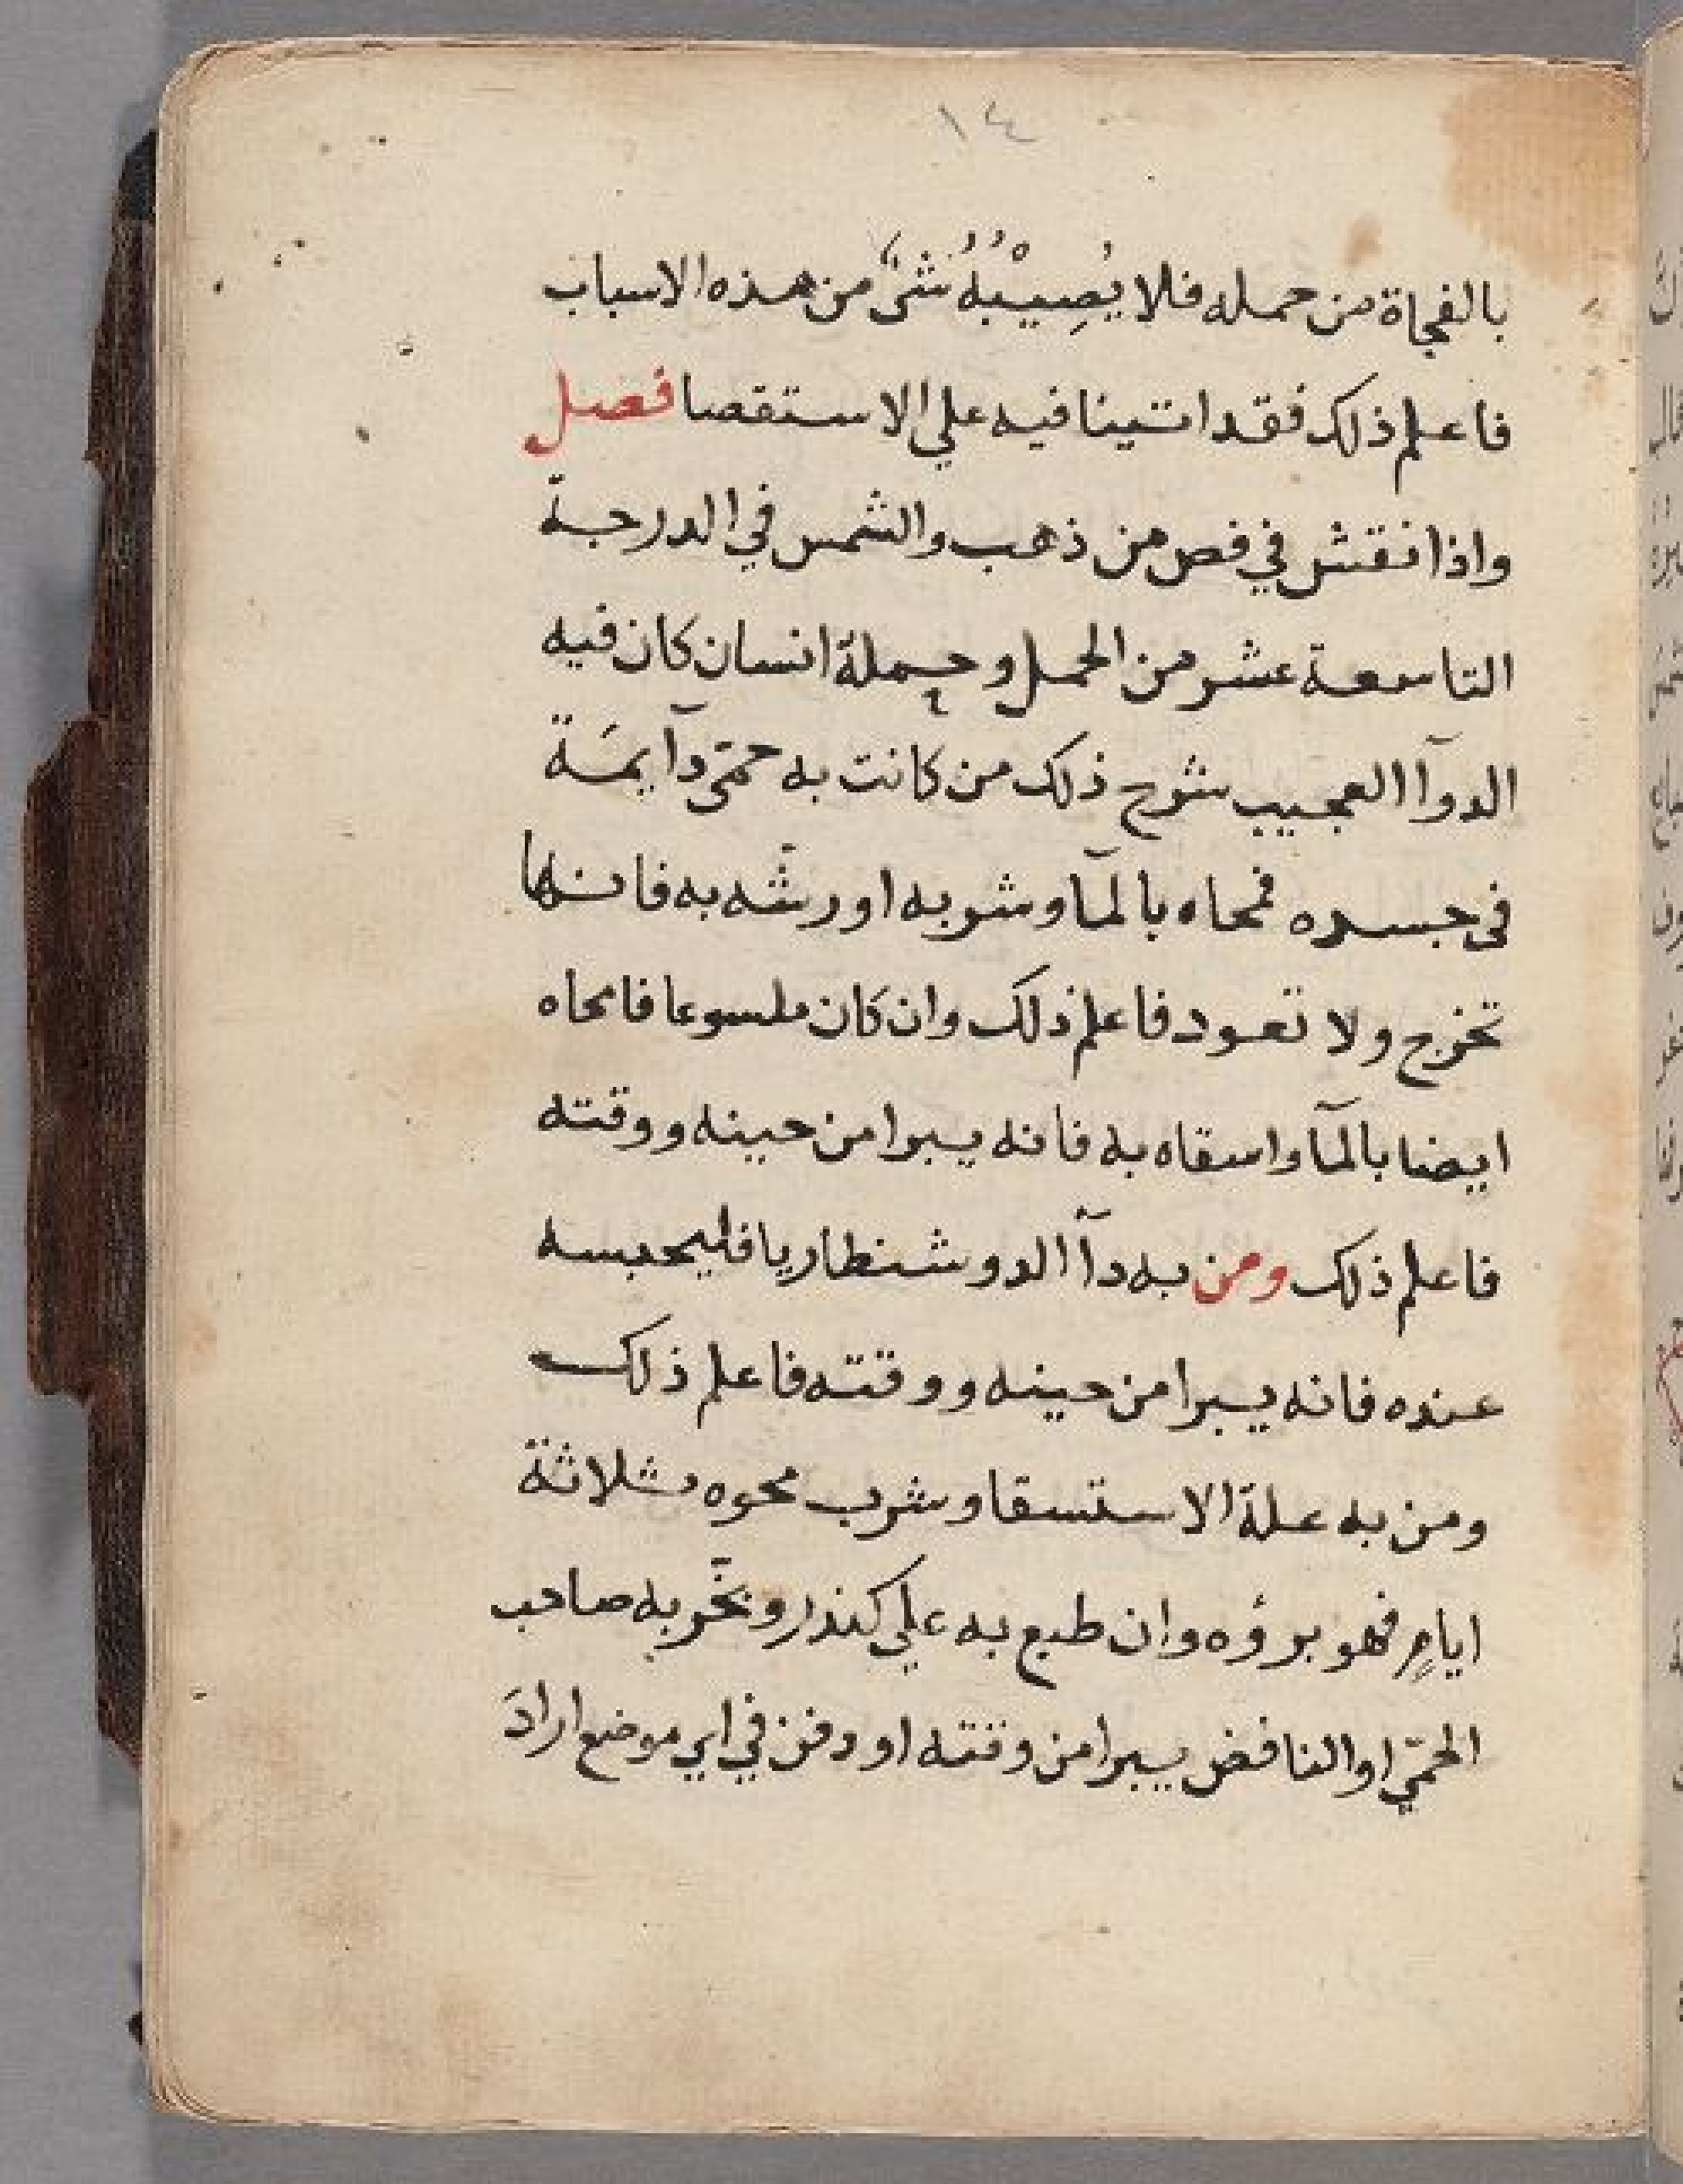 ١٤
بالفجاة من حمله فلا يُصِيبْهُ شىٌ من هذه الاسباب
فاعلم ذلك فقد اتينا فيه علي الاستقصا فصل
واذا نقش في فص من ذهب والشمس في الدرجة
التاسعة عشر من الحمل وحملة انسان كان فيه
الدوآ العجيب شرح ذلك من كانت به حمّى دآيمَة
فى جسده فمحاه بالمآ وشربه او رشّه به فانها
تخرج ولا تعود فاعلم ذلك وان كان ملسوعا فامحاه
ايضا بالمآ واسقاه به فانه يبرا من حينه ووقته
فاعلم ذلك ومن به دآ الدوشنطاريا فليحبسه
عنده فانه يبرا من حينه ووقته فاعلم ذلك
ومن به علة الاستسقا وشرب محوه ثلاثة
ايامٍ فهو برؤه وان طبع به علي كندر وبخّر به صاحب
الحمّي او النافض يبرا من وقته او دفن في اي موضع ارادَ